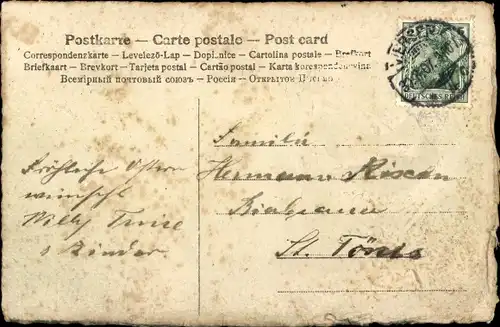 Postkarte — Carte postale — Post card
Correspondenzkarte — Levelező-Lap — Dopisnice — Cartolina postale — Brefkort
Briefkaart — Brevkort — Tarjeta postal — Cartão postal — Karta korespondencyjna
Всемірный почтовый союзъ — Россія — Открытое Письмо
DEUTSCHES REICH
Familie
Hermann
St. Tönis
Fröhliche Ostern
wünscht
Willy
& Kinder